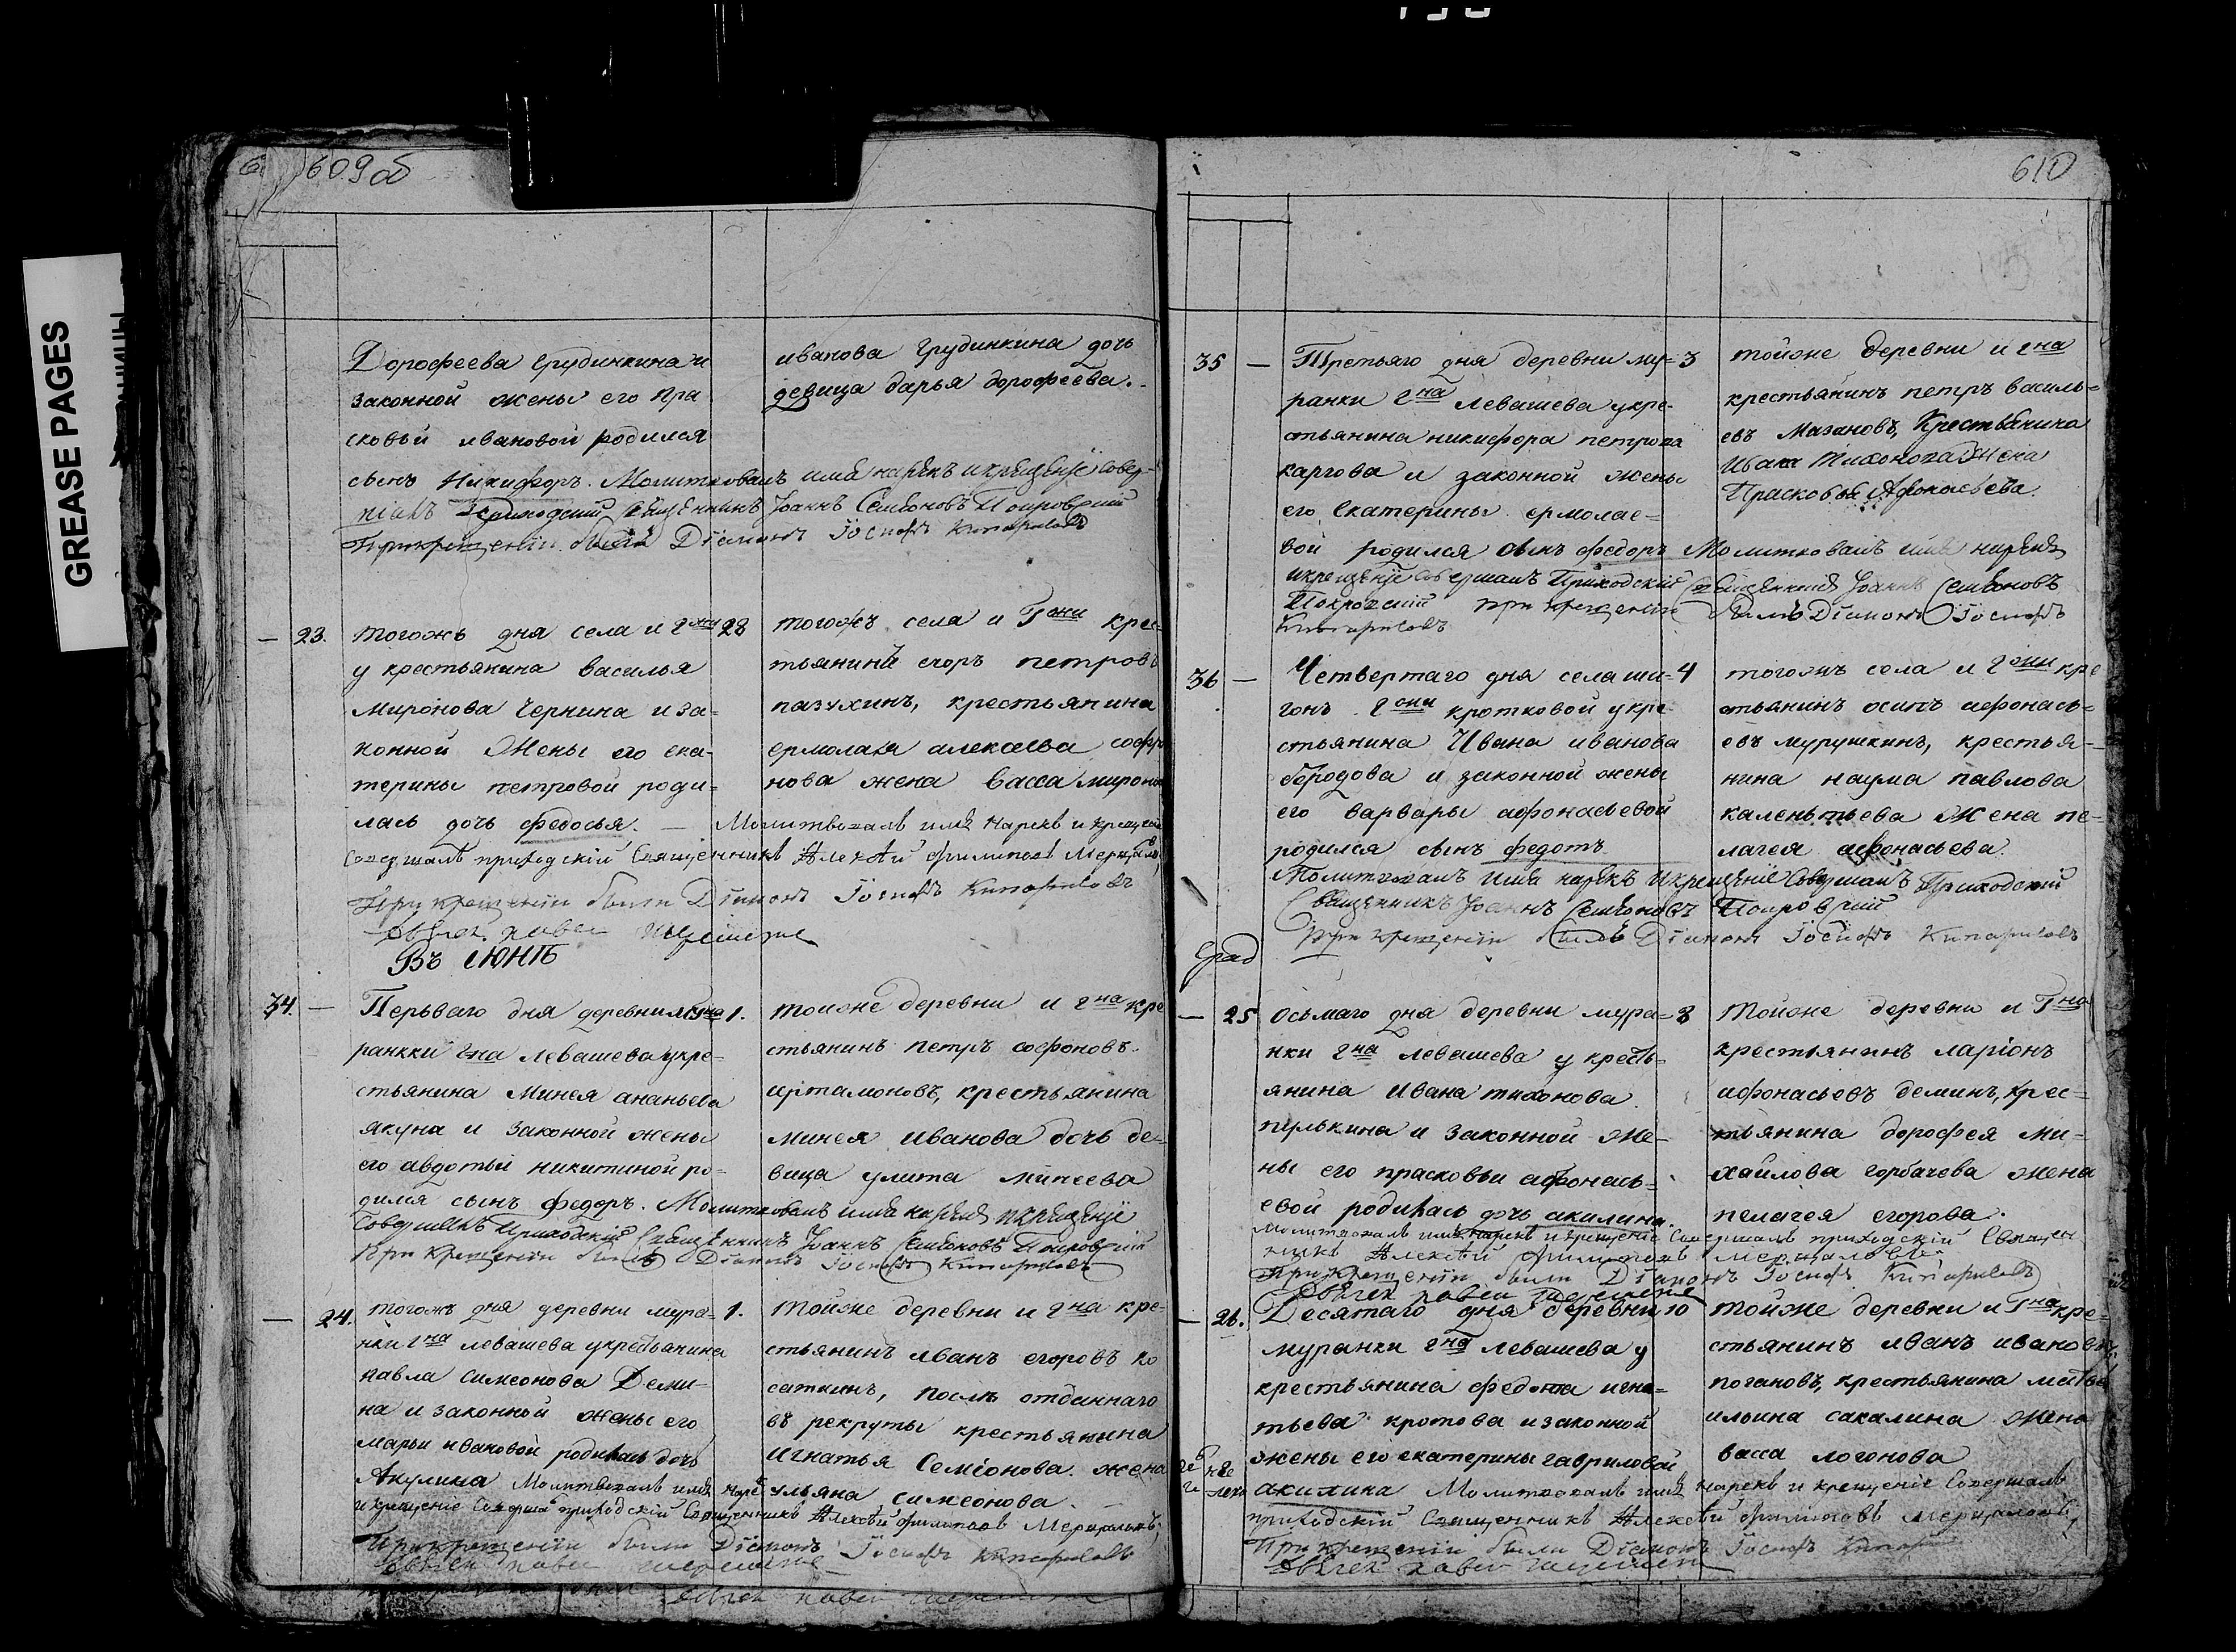 GREASE PAGES
609об
Дорофеева Грудинкина и
законной жены его пра
сковьи ивановой родился
сынъ Никифоръ. Молитвовалъ имя нарекъ и крещенїе совер-
шалъ Приходскїй Священникъ Іоаннъ Семёновъ Покровскїй
При крещенїи былъ Дїаконъ Іосифъ Кипарисовъ
иванова Грудинкина дочь
девица дарья дорофеева.
23.
тогожъ дня села и Гжи 28
у крестьянина василья
миронова Чернина и за-
конной жены его ека-
терины петровой роди-
лась дочь федосья. — Молитвовалъ имя нарекъ и крещенїе
совершалъ приходскїй Священникъ Алексѣй Филиповъ Мерцаловъ,
При крещенїи были Дїаконъ Іосифъ Кипарисовъ
тогожъ села и Гжи крес-
тьянинъ егоръ петровъ
пазухинъ, крестьянина
ермолая алексеева софро
нова жена васса миронова
Въ ІЮНѢ
34. —
Перьваго дня деревни му- 1.
ранкки Гна левашева у кре-
стьянина Минея ананьева
якуна и законной жены
его авдотьи никитиной ро-
дился сынъ федоръ. Молитвовалъ имя нарекъ и крещенїе
Совершалъ Приходскїй Священникъ Іоаннъ Семёновъ Покровскїй
При крещенїи былъ Дїаконъ Іосифъ Кипарисовъ
тойже деревни и Гна кре
стьянинъ петръ софоновъ
артамоновъ, крестьянина
минея иванова дочь де-
вица улита минеева
— 24.
тогожъ дня деревни мура- 1.
нки Гна левашева у крестьянина
павла симеонова Деми-
на и законной жены его
марьи ивановой родилась дочь
Акулина Молитвовалъ имя наре
и крещенїе Соверша приходскїй Священникъ Алексѣй Филиповъ Мерцаловъ,
При крещенїи были Дїаконъ Іосифъ Кипарисовъ
тойже деревни и Гна кре-
стьянинъ иванъ егоровъ ко
саткинъ, послѣ отданнаго
въ рекруты крестьянина
Игнатья Семїонова жена
ульяна симеонова.
610
35 —
Третьяго дня деревни му- 3
ранки Гна левашева у кре-
стьянина никифора петрова
каргова и законной жены
его екатерины ермолае-
вой родился сынъ федоръ Молитвовалъ имя нарекъ
и крещенїе совершалъ Приходскїй Священникъ Іоаннъ Семёновъ
Покровскїй при крещенїи былъ Дїаконъ Іосифъ
Кипарисовъ
тойже деревни и Гна
крестьянинъ петръ василь-
евъ Мазановъ, Крестьянина
Ивана Тихонова Жена
Прасковья Афонасьева.
36 —
Четвертаго дня села ши- 4
гонъ Гжи кротковой у кре-
стьянина Ивана иванова
бородова и законной жены
его варвары афонасьевой
родился сынъ федотъ
Молитвовалъ имя нарекъ и крещенїе Совершалъ Приходскїй
Священникъ Іоаннъ Семёновъ Покровскїй
При крещенїи былъ Дїаконъ Іосифъ Кипарисовъ
тогожъ села и Гжи кре
стьянинъ осипъ афонась-
евъ мурушкинъ, крестья-
нина наума павлова
каленьтьева Жена пе-
лагея афонасьева.
— 25
Осьмаго дня деревни мура- 8
нки Гна левашева у кресть-
янина Ивана тихонова
пулькина и законной же-
ны его прасковьи афонась-
евой родилась дочь акилина.
Молитвовалъ имя нарекъ и крещенїе Совершалъ приходскїй Священ
никъ Алексѣй Филиповъ Мерцаловъ.
При крещенїи были Дїаконъ Іосифъ Кипарисовъ
Тойже деревни и Гна
крестьянинъ ларїонъ
афонасьевъ деминъ, крес-
тьянина дорофея ми-
хайлова горбачева жена
пелагея егорова.
— 26.
Десятаго дня деревни 10
муранки Гна левашева у
крестьянина федота игна-
тьева кротова и законной
жены его екатерины гавриловой
акилина Молитвовалъ имя нарекъ и крещенїе Совершалъ
приходскїй Священникъ Алексѣй Филиповъ Мерцаловъ,
При крещенїи были Дїаконъ Іосифъ
тойже деревни и Гна кре-
стьянинъ иванъ ивановъ
погановъ, крестьянина матвея
ильина сакалина жена
васса логонова